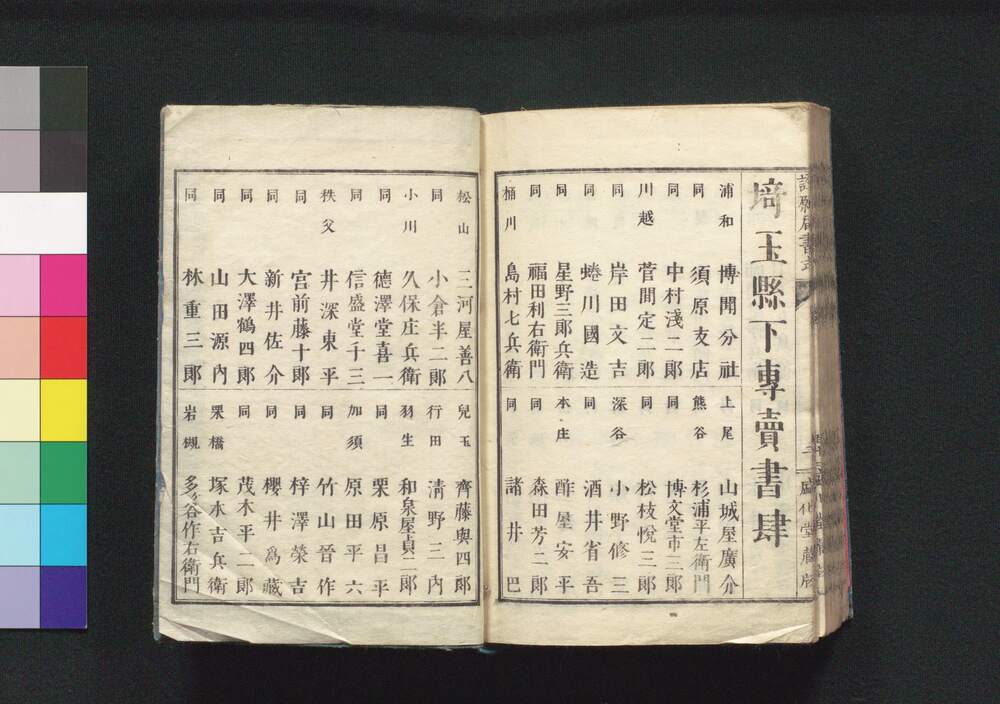 埼玉縣下專賣書肆
浦和 博聞分社
同 須原支店
同 中村淺二郎
川越 菅間定二郎
同 岸田文吉
同 蜷川國造
同 星野三郎兵衛
同 福田利右衛門
桶川 島村七兵衛
上尾 山城屋廣介
熊谷 杉浦平左衛門
同 博文堂市三郎
同 松枝悅三郎
深谷 小野修三
同 酒井省吾
本庄 酢屋安平
同 森田芳二郎
同 諸井巴
松山 三河屋善八
同 小倉半二郎
小川 久保庄兵衛
同 德澤堂喜一
同 信盛堂千三
秩父 井深東平
同 宮前藤十郎
同 新井佐介
同 大澤鶴四郎
同 山田源內
同 林重三郎
兒玉 齊藤與四郎
行田 淸野三內
羽生 和泉屋貞二郎
同 栗原昌平
加須 原田平六
同 竹山晉作
同 梓澤榮吉
同 櫻井爲藏
同 茂木平二郎
栗橋 塚本吉兵衛
岩槻 多谷作右衛門